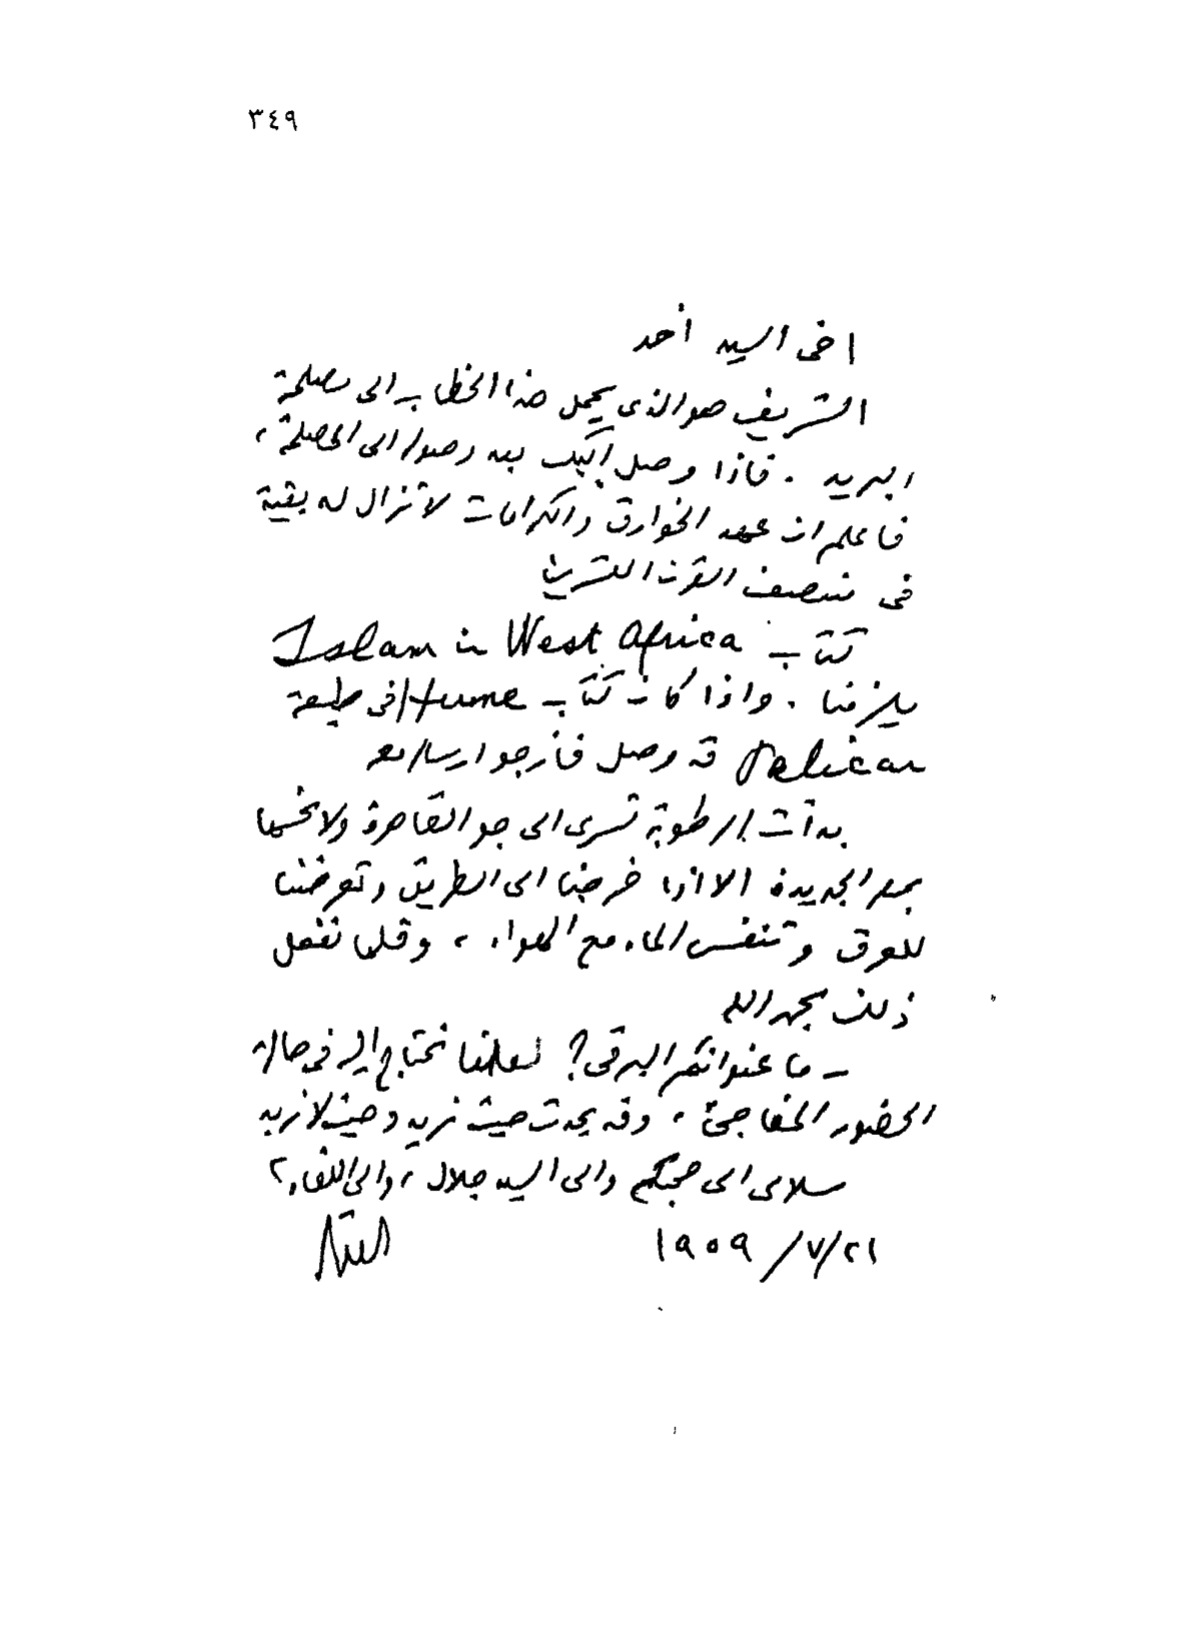 ٣٤٩
اخى السيد أحمد
الشريف هو الذى يحمل هذا الخطاب الى مصلحة
البريد . فاذا وصل إليك بعد وصوله الى المصلحة ،
فاعلم ان عهد الخوارق والكرامات لا تزال له بقية
فى منتصف القرن العشرين
كتاب Islam in West Africa
يلزمنا . واذا كان كتاب Hume فى طبعة
Pelican قد وصل فأرجو ارساله معه
بدأت الرطوبة تسرى الى جو القاهرة ولا نحسها
بمصر الجديدة الا اذا خرجنا الى الطريق وتعرضنا
للعرق وتنفس الماء مع الهواء ، وقلما نفعل
ذلك بحمد الله
– ما عنوانكم البرقى ؟ لعلنا نحتاج اليه فى حالة
الحضور المفاجئ ، وقد يحدث حيث نريد وحيث لا نريد
سلامى الى صحبكم والى السيد جلال ، والى اللقاء
٢١/٧/١٩٥٩